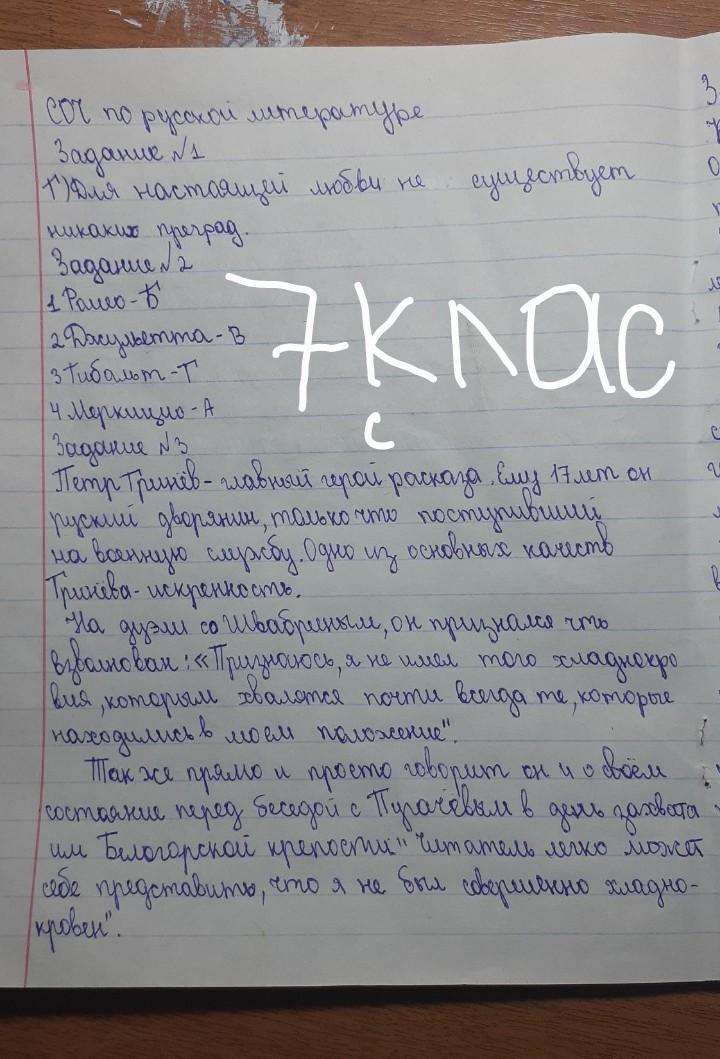 СОЧ по русской литературе
Задание №1
Г) Для настоящей любви не существует
никаких преград.
Задание №2
1 Ромео - Б
2 Джульетта - В
3 Тибальт - Г
4 Меркицио - А
7 клас
с
Задание №3
Петр Гринёв - главный герой расказа. Ему 17 лет он
руский дворянин, только что поступивший
на военную службу. Одно из основных качеств
Гринёва - искренность.
На дуэли со Швабриным, он признался что
взволнован: «Признаюсь, я не имел того хладнокро
вия, которым хвалятся почти всегда те, которые
находились в моем положение".
Так же прямо и просто говорит он и о своём
состояние перед беседой с Пугачёвым в день захвата
им Белогорской крепости: "Читатель легко может
себе представить, что я не был совершенно хладно-
кровен".